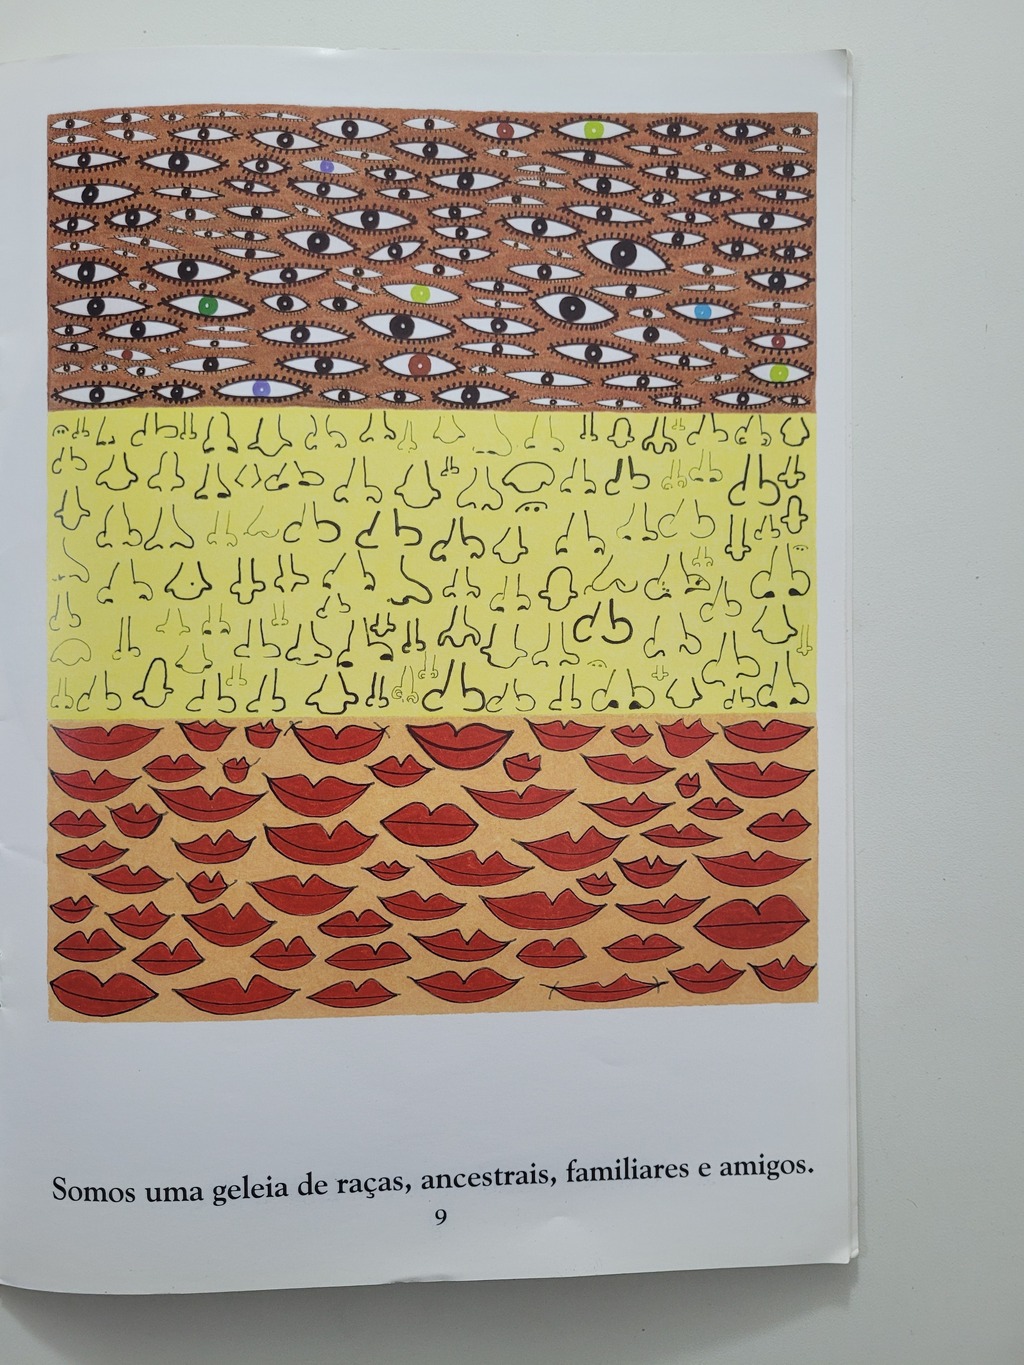 Somos uma geleia de raças, ancestrais, familiares e amigos.
9